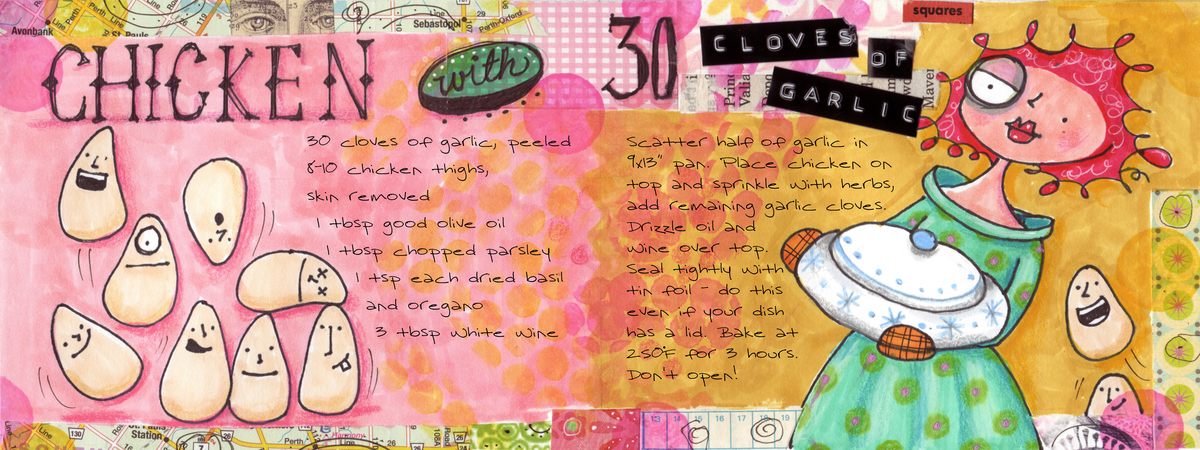 CHICKEN with 30 CLOVES OF GARLIC
squares
30 cloves of garlic, peeled
8-10 chicken thighs,
skin removed
1 tbsp good olive oil
1 tbsp chopped parsley
1 tsp each dried basil
and oregano
3 tbsp white wine
Scatter half of garlic in
9x13" pan. Place chicken on
top and sprinkle with herbs,
add remaining garlic cloves.
Drizzle oil and
wine over top.
Seal tightly with
tin foil - do this
even if your dish
has a lid. Bake at
250°F for 3 hours.
Don't open!
Avonbank
Perth Line
St. Pauls
Line
Sebastopol
107
29
Perth-Oxford
Maver
130
Station
7
Perth
126
26
Line
Road
106A
28
13
14
15
16
17
18
19